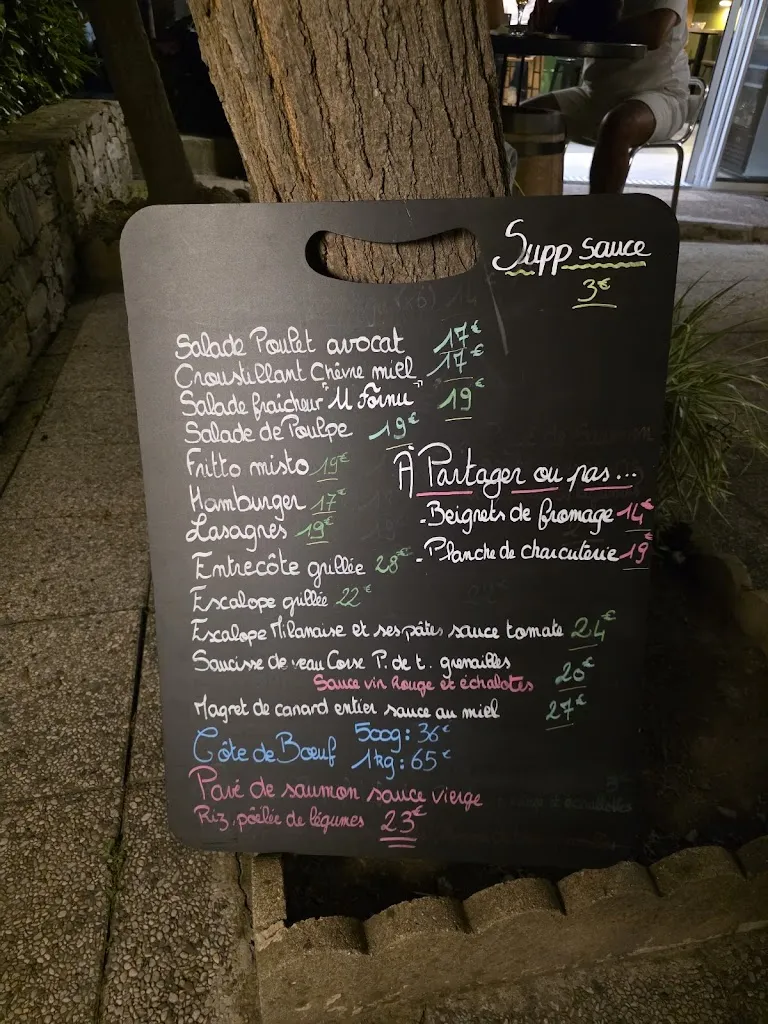 Supp sauce
3€
Salade Poulet avocat 17€
Croustillant Chèvre miel 17€
Salade fraîcheur "U Fornu" 19€
Salade de Poulpe 19€
Fritto misto 19€
Hamburger 17€
Lasagnes 19€
Entrecôte grillée 28€
Escalope grillée 22€
À Partager ou pas...
- Beignets de fromage 14€
- Planche de charcuterie 19€
Escalope Milanaise et ses pâtes sauce tomate 24€
Saucisse de veau Corse P. de t. grenailles
Sauce vin Rouge et échalotes 20€
Magret de canard entier sauce au miel 27€
Côte de Bœuf 500g: 36€
1kg: 65€
Pavé de saumon sauce vierge
Riz, pôêlée de légumes 23€